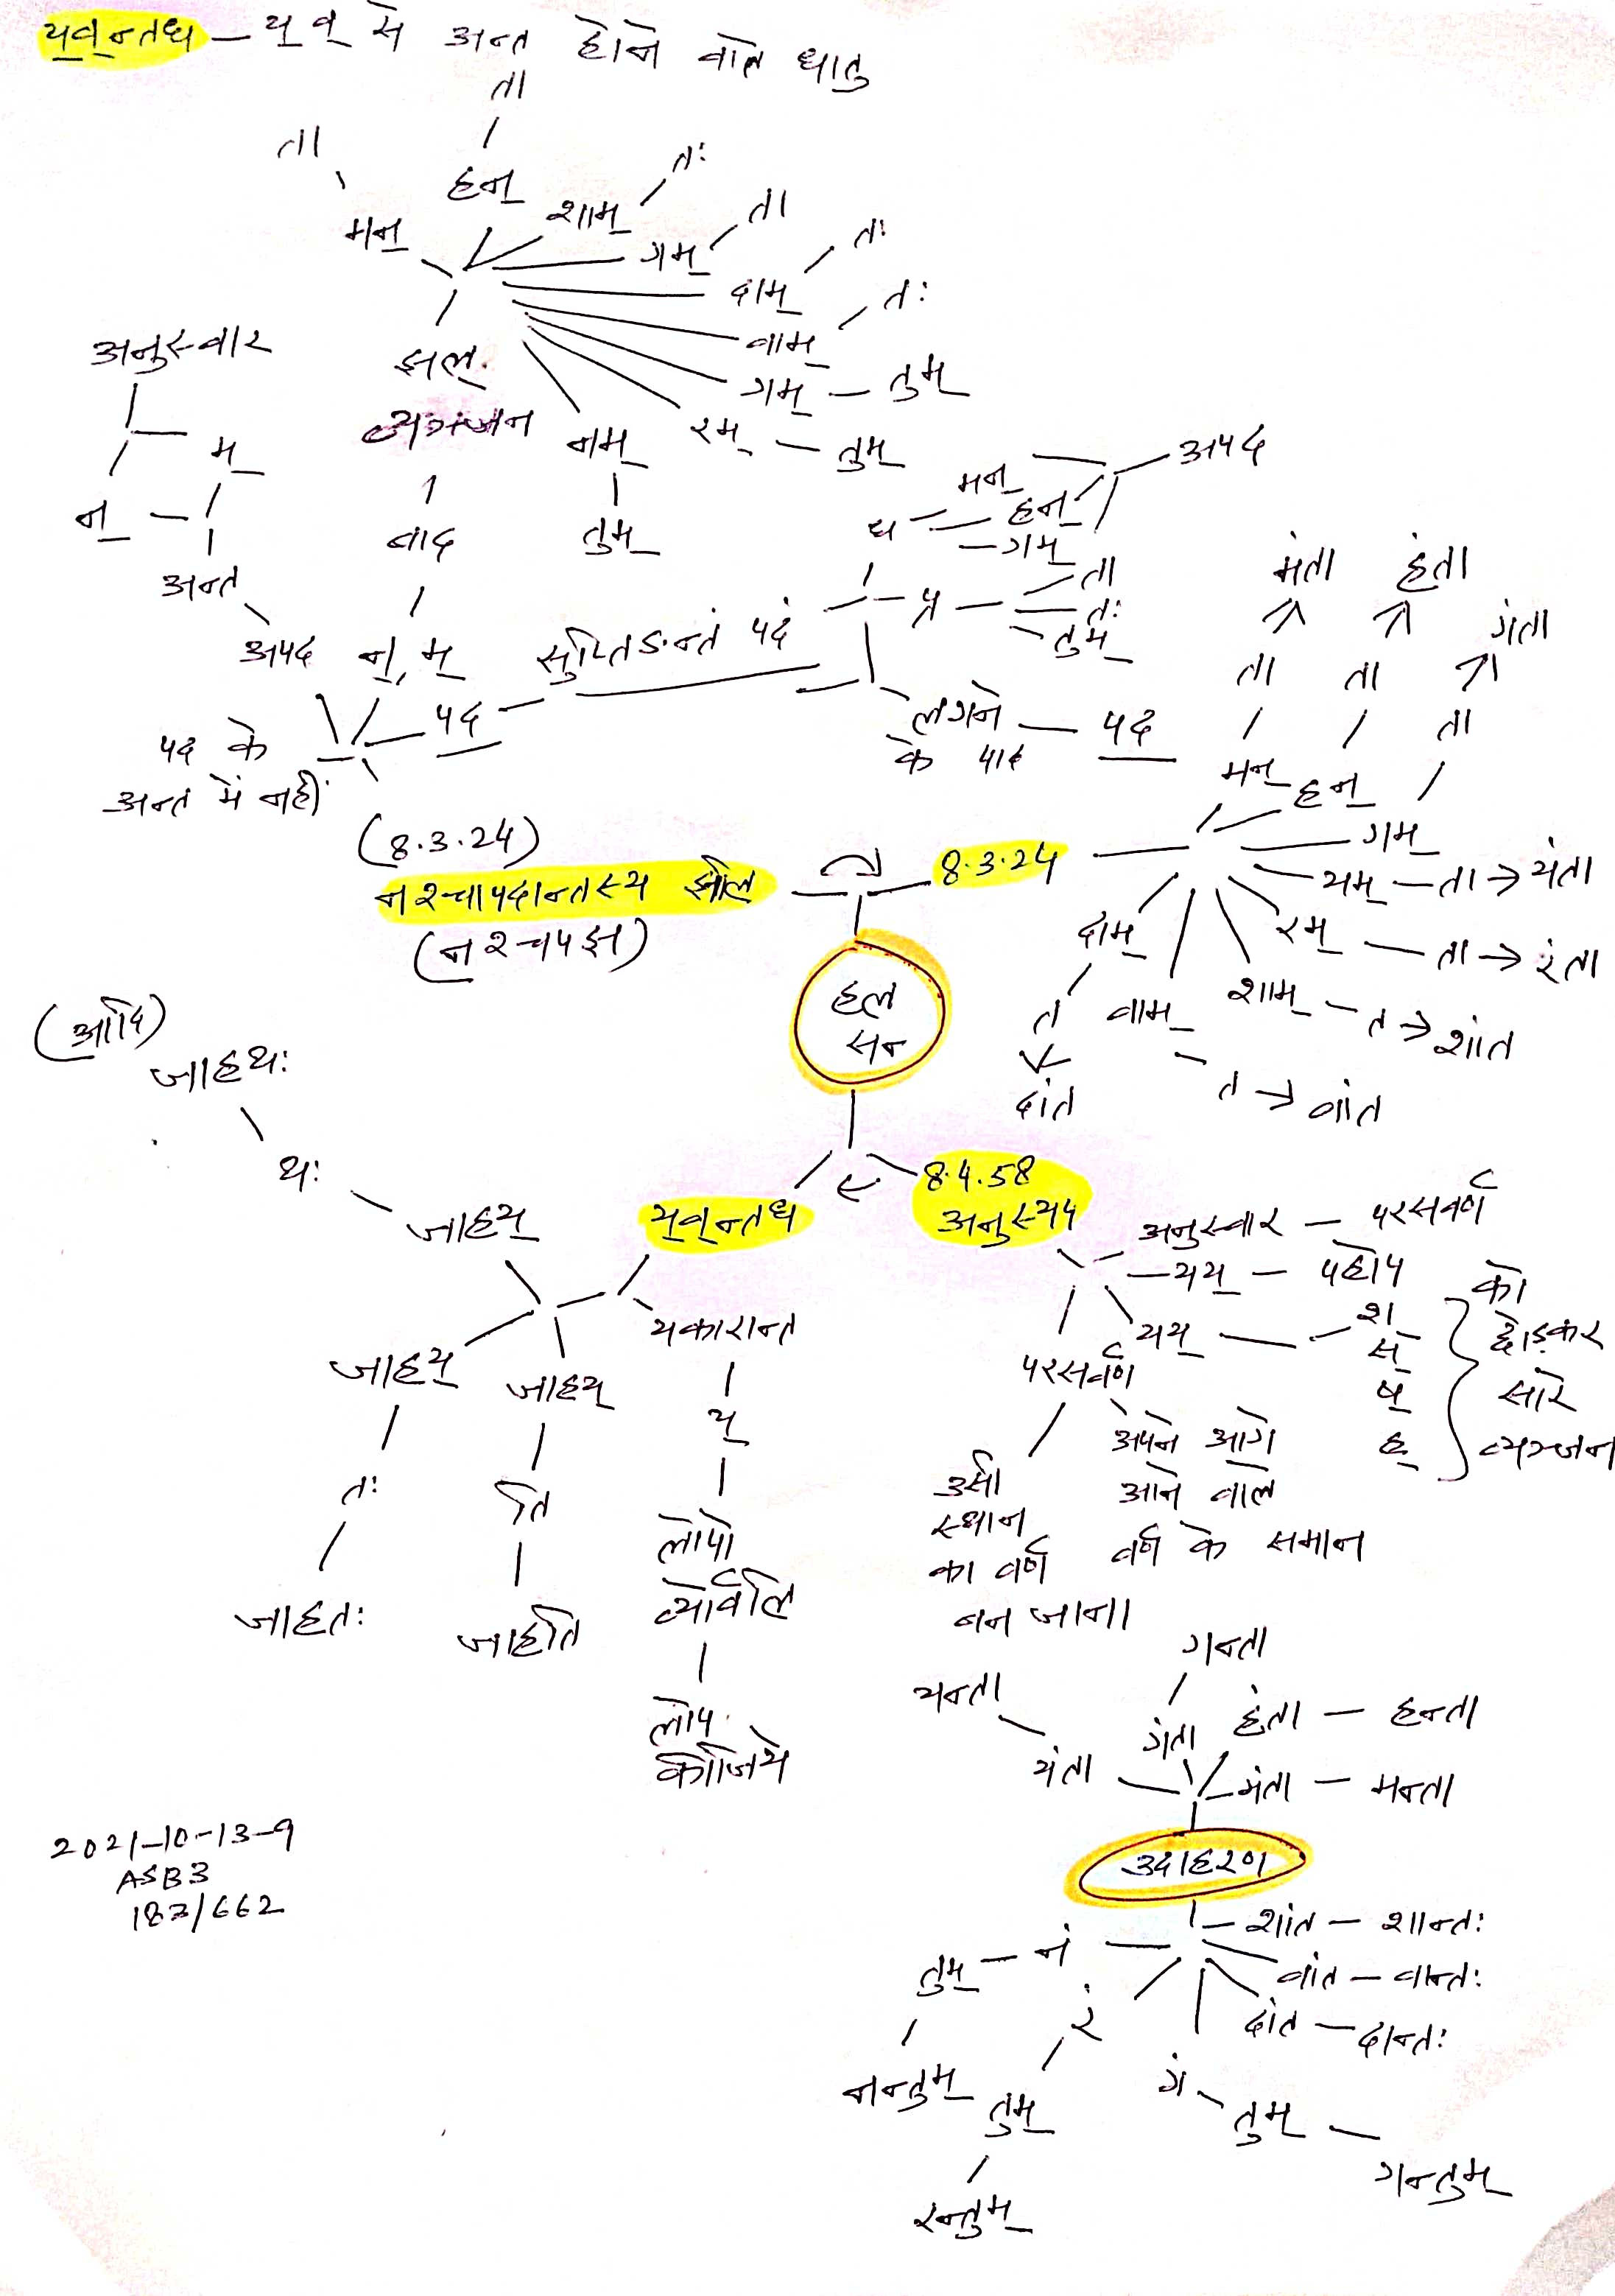 य्व्न्तध – य् व् से अन्त होने वाले धातु
ता
ता
हन्
शाम्
तः
मन्
गम्
ता
दाम्
तः
वाम्
तः
गम् – तुम्
रम् – तुम्
नम्
तुम्
अनुस्वार
म्
न्
अन्त
अपद
झल्
व्यञ्जन
बाद
न्, म्
पद
पद के
अन्त में नहीं
सुप्तिङन्तं पदं
ध
मन्
हन्
गम्
अपद
प्र
ता
तः
तुम्
लगने – पद
के बाद
मंता
हंता
गंता
ता
ता
ता
मन्
हन्
गम्
यम् – ता → यंता
रम् – ता → रंता
शाम् – त → शांत
वाम्
त → वांत
दाम्
त
दांत
(8.3.24)
नश्चापदान्तस्य झलि
(नश्चपझ)
8.3.24
हल
सन
(आदि)
जाहथः
थः
जाहय्
य्व्न्तध
8.4.58
अनुस्यप
जाहय्
तः
जाहतः
जाहय्
ति
जाहति
यकारान्त
य्
लोपो
व्योर्वलि
लोप
कीजिये
अनुस्वार – परसवर्ण
यय् – पहोप
यय् – श्
स्
ष्
ह्
को
छोड़कर
सारे
व्यञ्जन
परसर्वण
उसी
स्थान
का वर्ण
बन जाना
अपने आगे
आने वाले
वर्ण के समान
गन्ता
यन्ता
यंता
गंता
हंता – हन्ता
मंता – मन्ता
उदाहरण
शांत – शान्तः
वांत – वान्तः
दांत – दान्तः
तुम् – नं
नन्तुम्
रं
तुम्
रन्तुम्
गं
तुम्
गन्तुम्
2021-10-13-9
ASB3
187/662